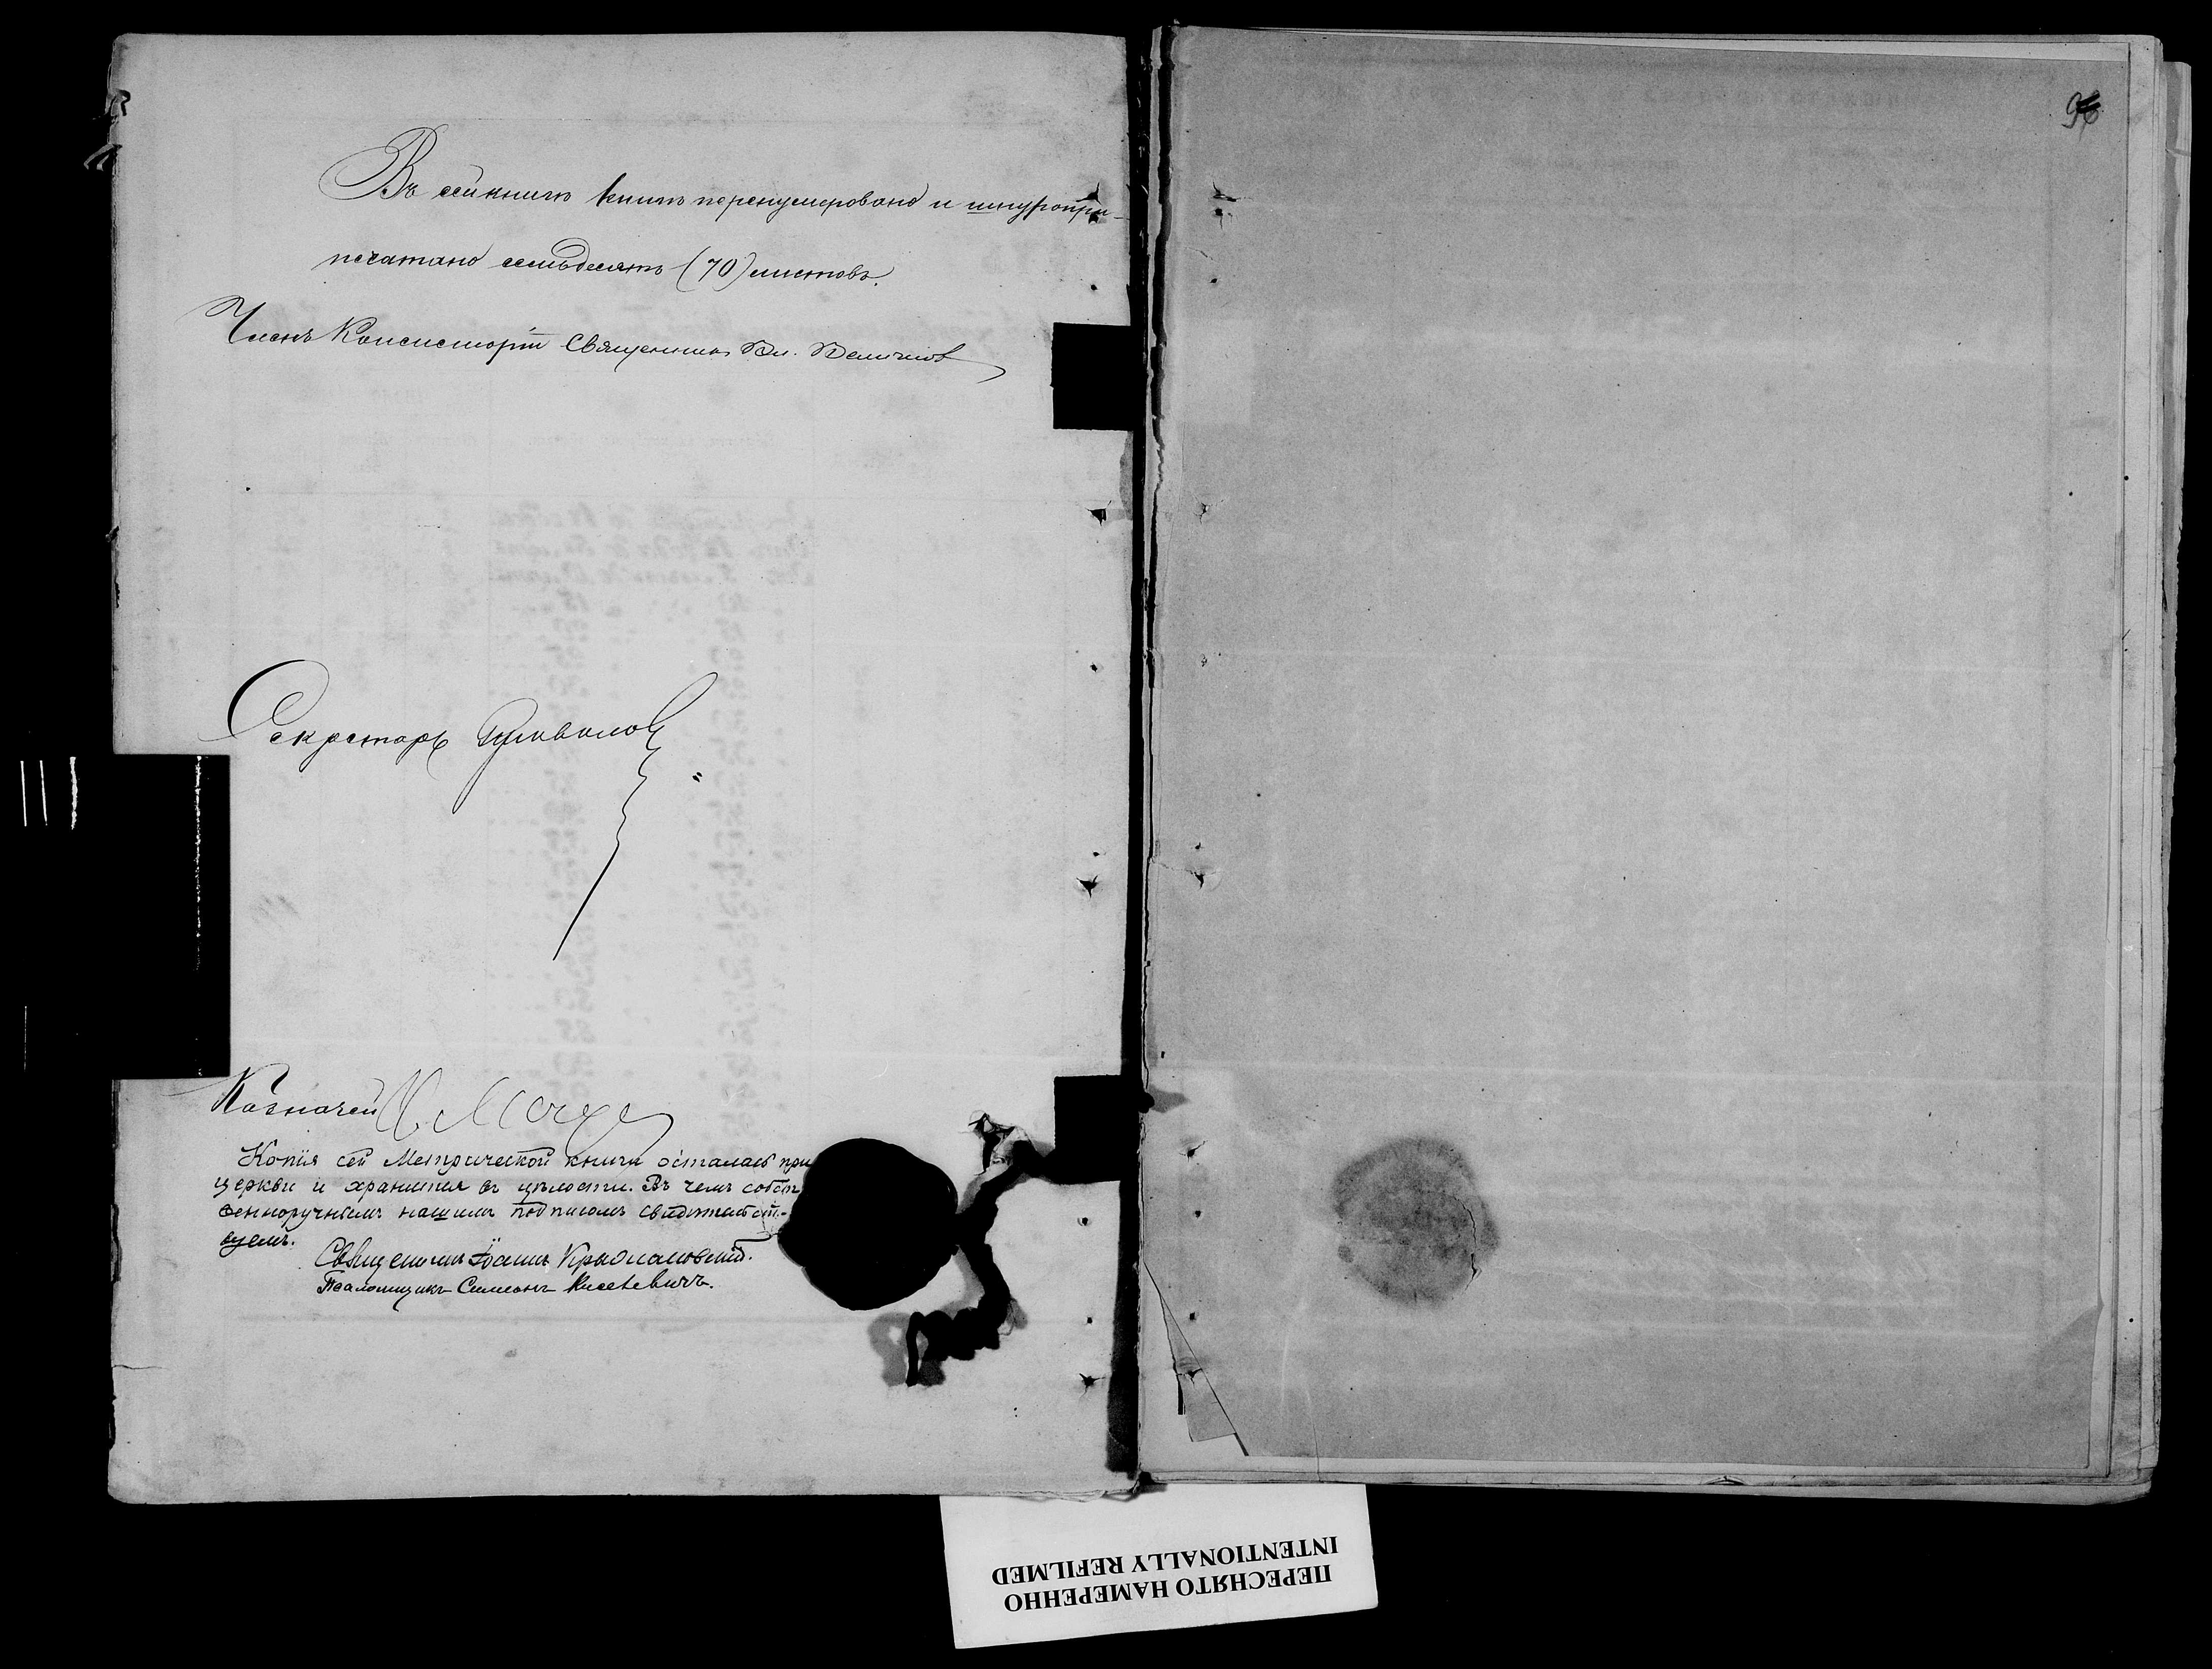 Въ сей книгѣ книгъ перенумеровано и шнуропри-
печатано семьдесятъ (70) листовъ.
Членъ Консисторіи Священникъ Вл.
Секретарь
Казначей
Копія сей Метрической книги осталась при
церкви и хранится въ цѣлости. Въ чемъ собст
венноручнымъ нашимъ подписомъ свидѣтельст-
вуемъ.
Священникъ Іоаннъ
Псаломщикъ Симеонъ
96
ПЕРЕСНЯТО НАМЕРЕННО
INTENTIONALLY REFILMED